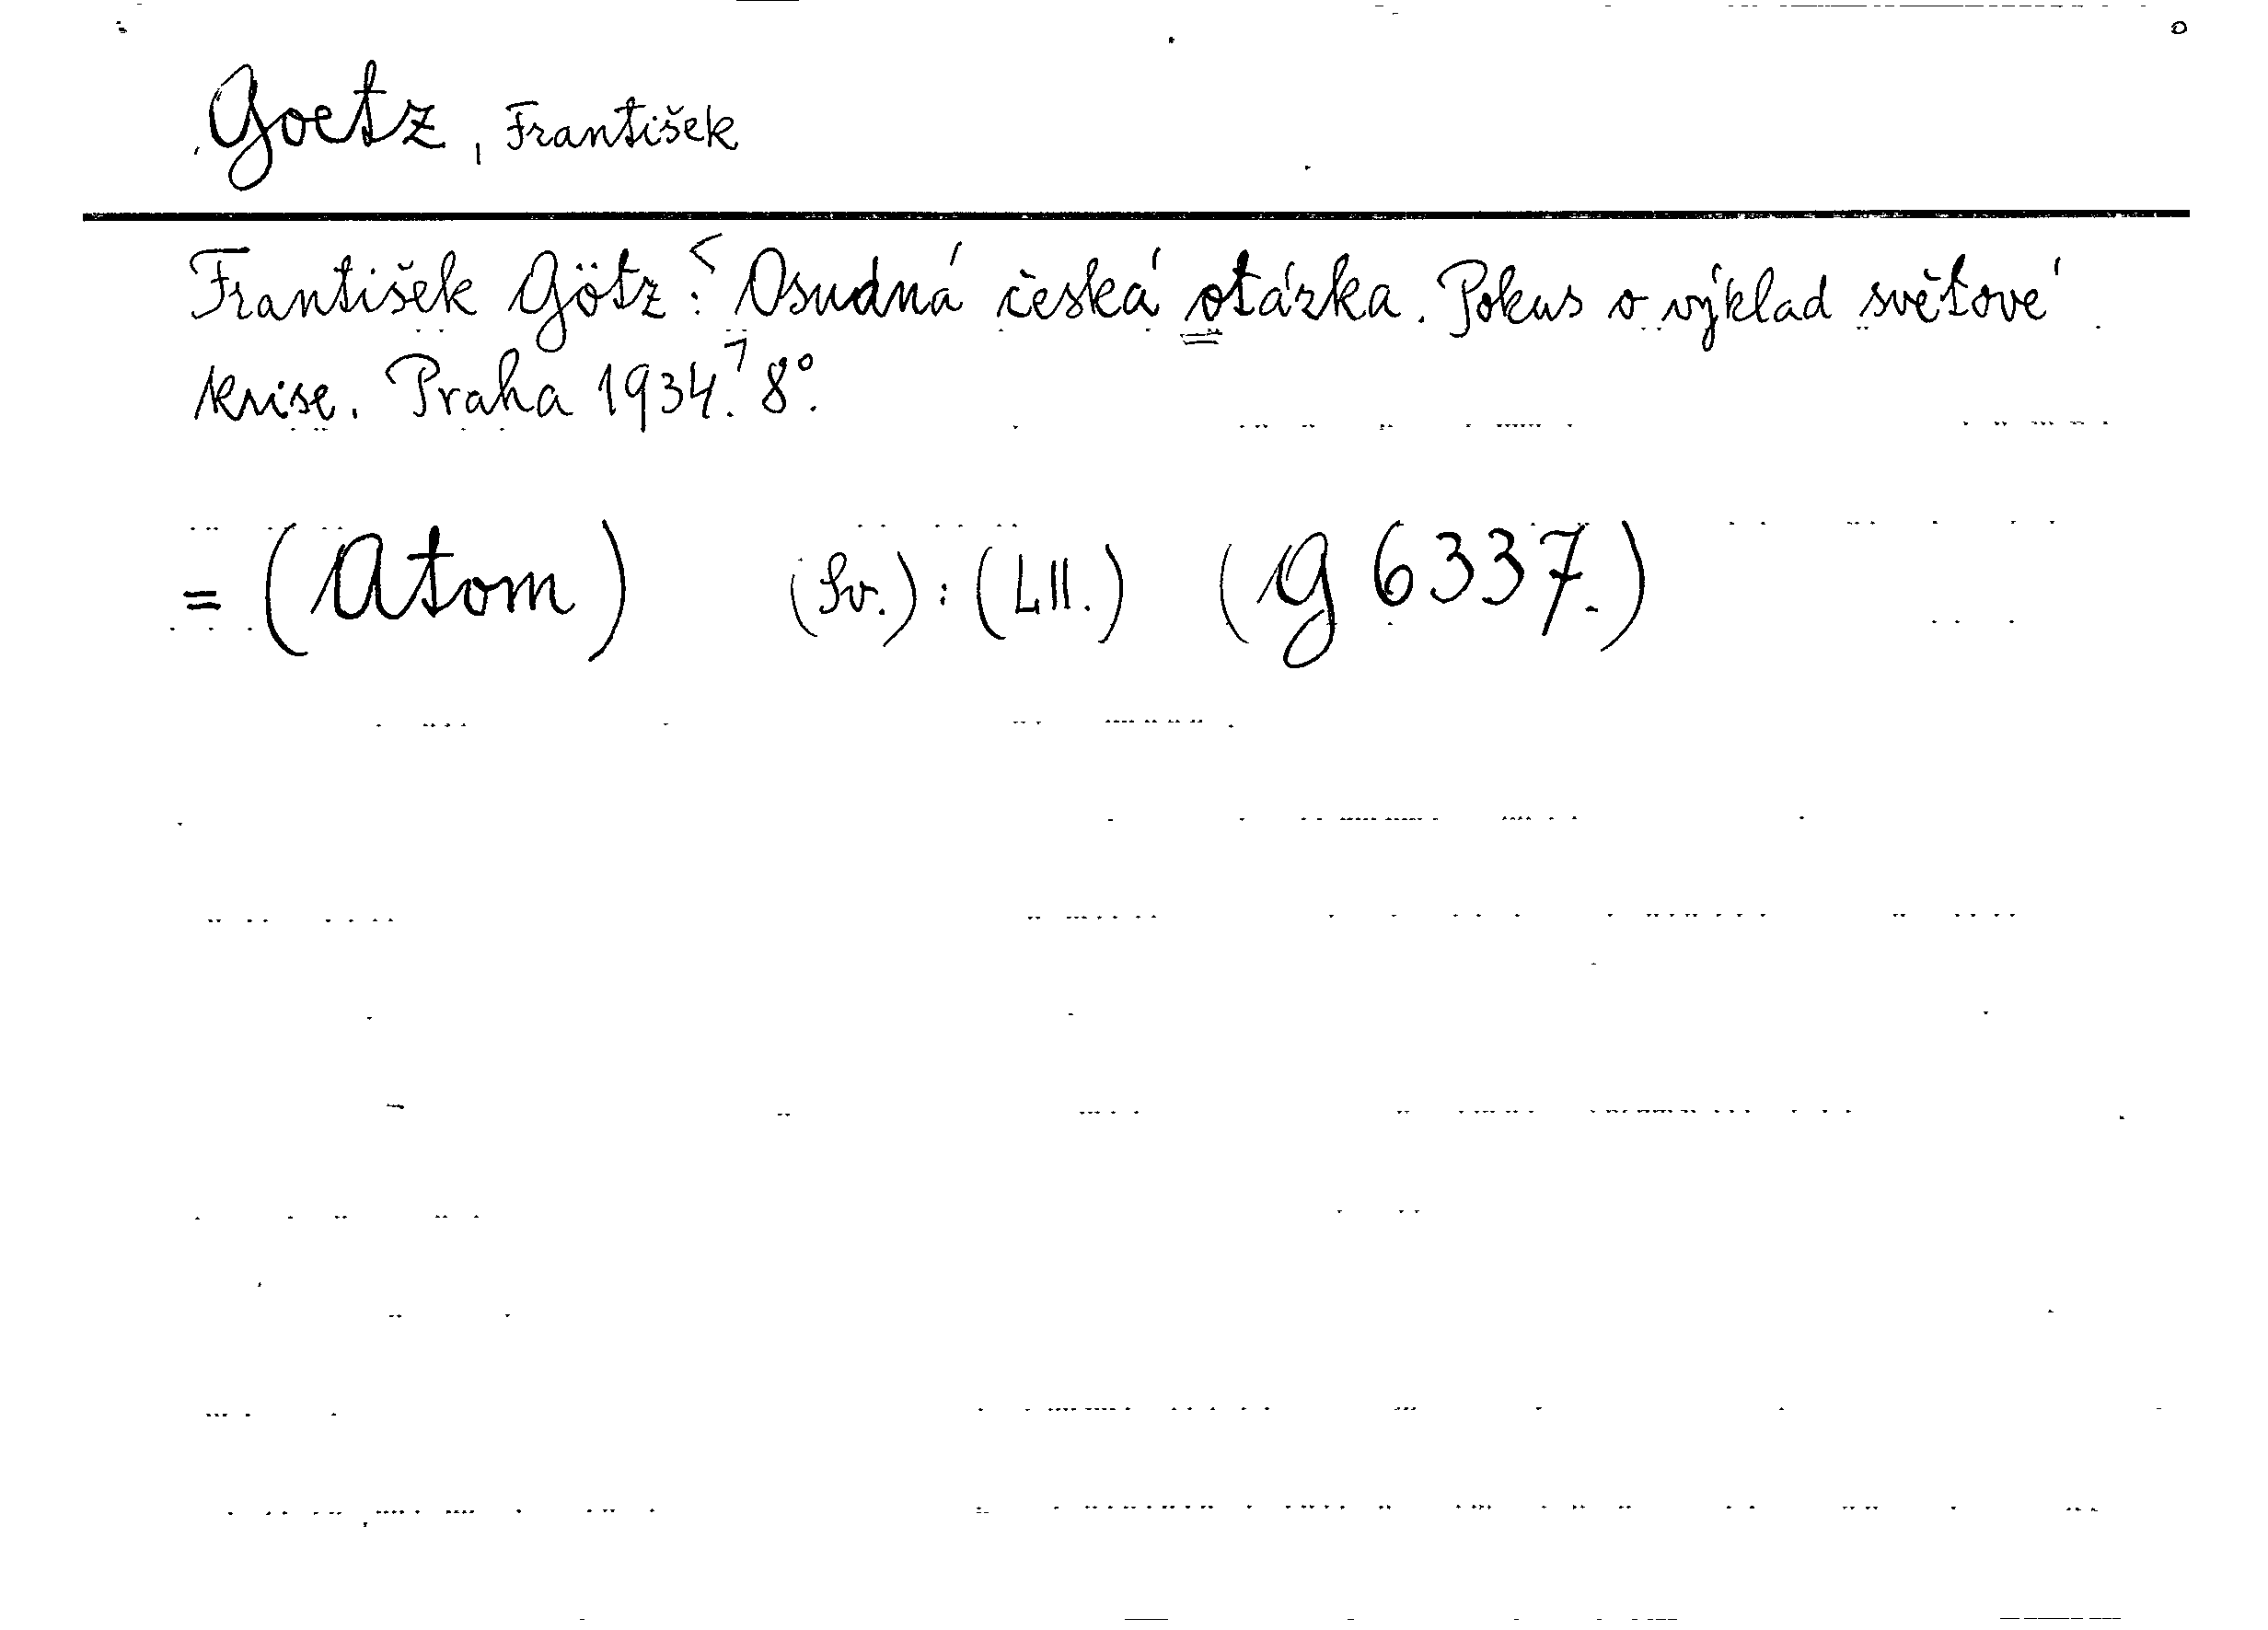 Goetz, František
František Götz: < Osudná česká otázka. Pokus o výklad světové
krise. Praha 1934.7 8°.
= (Atom) (Sv.): (LII.) (G 6337.)